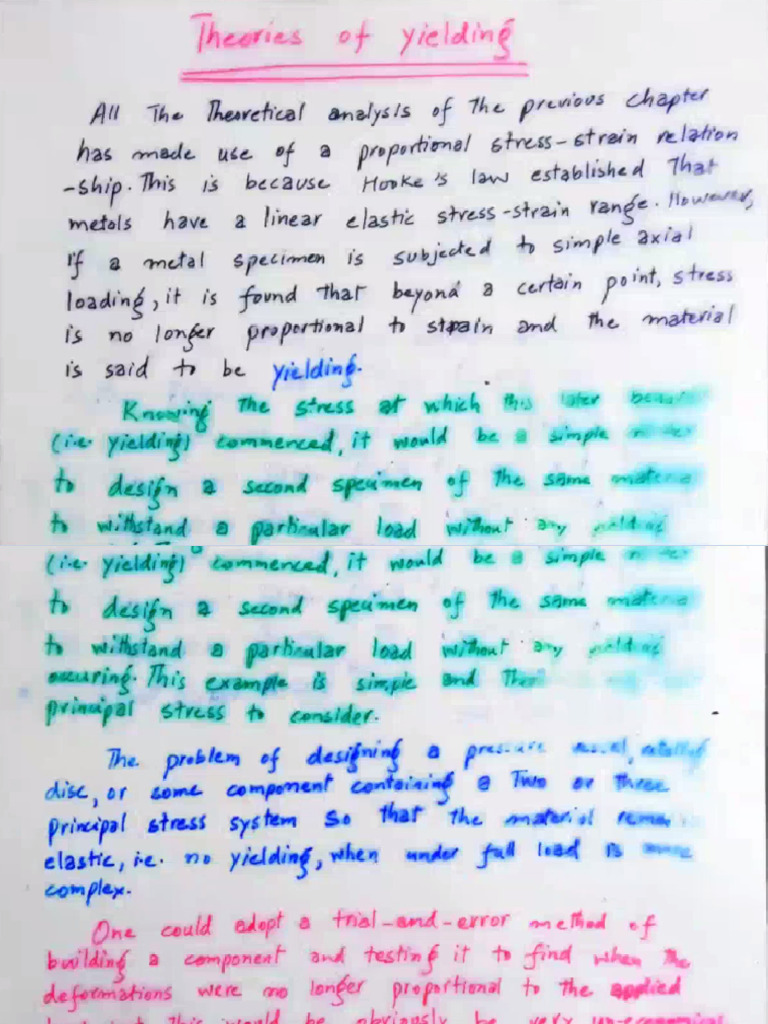 Theories of yielding
All The Theoretical analysis of The previous chapter
has made use of a proportional stress-strain relation
-ship. This is because Hooke's law established That
metals have a linear elastic stress-strain range. However,
if a metal specimen is subjected to simple axial
loading, it is found that beyond a certain point, stress
is no longer proportional to strain and the material
is said to be yielding.
Knowing The stress at which this later
(i.e. yielding) commenced, it would be a simple
to design a second specimen of the same material
to withstand a particular load without any yielding
(i.e. yielding) commenced, it would be a simple
to design a second specimen of the same material
to withstand a particular load without any yielding
occuring. This example is simple and
principal stress to consider.
The problem of designing a pressure vessel, rotating
disc, or some component containing a Two or three
principal stress system so that the material remains
elastic, i.e. no yielding, when under full load is more
complex.
One could adopt a trial-and-error method of
building a component and testing it to find when the
deformations were no longer proportional to the applied
This would be obviously be very un-economical